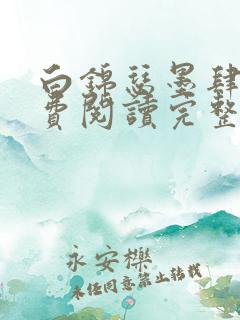 白錦瑟墨肆
費閱讀完整
永安櫟
未經同意禁止轉載